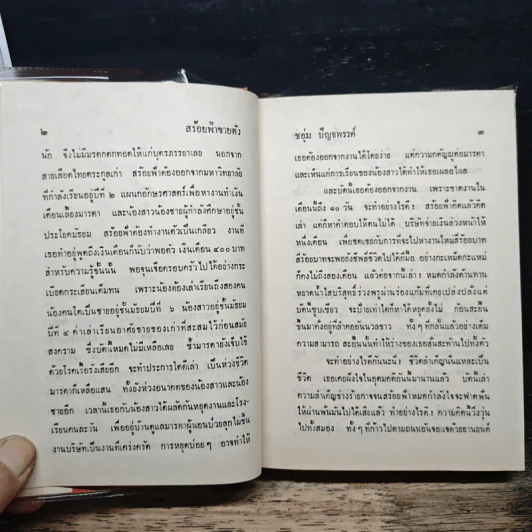 ๒ สร้อยฟ้าขายตัว
นัก จึงไม่มีมรดกตกทอดให้แก่บุตรภรรยาเลย นอกจาก
สายเลือดไทยตระกูลเก่า สร้อยฟ้าต้องออกจากมหาวิทยาลัย
ที่กำลังเรียนอยู่ปีที่ ๒ แผนกอักษรศาสตร์เพื่อหางานทำเงิน
เดือนเลี้ยงมารดา และน้องสาวน้องชายผู้กำลังศึกษาอยู่ชั้น
ประโยคมัธยม สร้อยฟ้าต้องทำงานตัวเป็นเกลียว งานที่
เธอทำอยู่พูดถึงเงินเดือนก็นับว่าพอตัว เงินเดือน ๔๐๐ บาท
สำหรับความรู้ชั้นนั้น พอจุนเจือครอบครัวไปได้อย่างกระ
เบียดกระเสียนเต็มทน เพราะน้องต้องเล่าเรียนถึงสองคน
น้องคนโตเป็นชายอยู่ชั้นมัธยมปีที่ ๖ น้องสาวอยู่ชั้นมัธยม
ปีที่ ๔ ค่าเล่าเรียนอาศัยขายของเก่าที่สะสมไว้ก่อนสมัย
สงคราม ซึ่งบัดนี้หมดไม่มีเหลือเลย ซ้ำมารดายังเจ็บไข้
ด้วยโรคเรื้อรังเสียอีก จะทำประการใดดีเล่า เป็นห่วงชีวิต
มารดาก็เหลือแสน ทั้งยังห่วงอนาคตของน้องสาวและน้อง
ชายอีก เวลานี้เธอกับน้องสาวได้ผลัดกันหยุดงานและโรง-
เรียนคนละวัน เพื่ออยู่บ้านดูแลมารดาผู้นอนป่วยลุกไม่ขึ้น
งานบริษัทเป็นงานที่เคร่งครัด การหยุดบ่อย ๆ อาจทำให้
ชอุ่ม ปัญจพรรค์ ๓
เธอต้องออกจากงานได้โดยง่าย แต่ความกตัญญูต่อมารดา
และเห็นแก่การเรียนของน้องสาวทำให้เธอเผลอไผล
และบัดนี้เธอต้องออกจากงาน เพราะขาดงานใน
เดือนนี้ถึง ๑๐ วัน จะทำอย่างไรดี ? สร้อยฟ้าคิดแล้วคิด
เล่า แต่ก็หาคำตอบให้ตนไม่ได้ บริษัทจ่ายเงินล่วงหน้าให้
หนึ่งเดือน เพื่อชดเชยกับการที่จะไปหางานใหม่สี่ร้อยบาท
สี่ร้อยบาทจะยังชีพสี่ชีวิตไปได้กี่มื้อ อย่างกะเหม็ดกะแหม่
ก็คงไม่ถึงสองเดือน แล้วต่อจากนั้นเล่า ! หมดกำลังต้านทาน
หยาดน้ำใสบริสุทธิ์ร่วงพรูผ่านร่องแก้มที่เคยเปล่งปลั่งแต่
บัดนี้ซูบเซียว จะป้ายเท่าใดก็หาได้หยุดยั้งไม่ ก้อนสะอื้น
ขึ้นมาคั่งอยู่ที่ลำคออันนวลขาว ทั้ง ๆ ที่กลั้นแล้วอย่างเต็ม
ความสามารถ สะอื้นนั้นทำให้ร่างของเธอสั่นสะท้านไปทั้งตัว
จะทำอย่างไรดีกันนะนี่ ! ชีวิตลำเค็ญนั้นแหละเป็น
ชีวิต เธอเคยฝังใจในอุดมคติอันนี้มานานแล้ว บัดนี้เล่า
ความลำเค็ญทางร่างกายจนสร้อยฟ้าหมดกำลังใจจะฟาดฟัน
ให้ผ่านพ้นมันไปได้เสียแล้ว ทำอย่างไรดี ? ความคิดนี้วิ่งวุ่น
ไปทั้งสมอง ทั้ง ๆ ที่ก้าวไปตามถนนอันจอแจด้วยยานยนต์